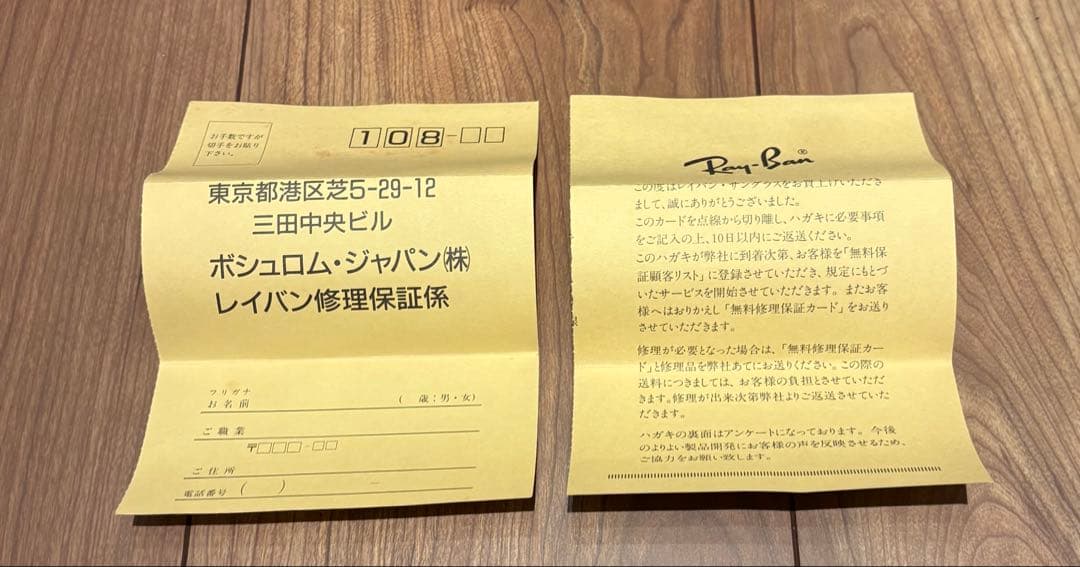 お手数ですが
切手をお貼り
下さい。
108-□□
東京都港区芝5-29-12
三田中央ビル
ボシュロム・ジャパン㈱
レイバン修理保証係
フリガナ
お名前 ( 歳:男・女)
ご職業
〒□□□-□□
ご住所
電話番号 ( )
Ray-Ban®
この度はレイバン・サングラスをお買上げいただき
まして、誠にありがとうございました。
このカードを点線から切り離し、ハガキに必要事項
をご記入の上、10日以内にご返送ください。
このハガキが弊社に到着次第、お客様を「無料保
証顧客リスト」に登録させていただき、規定にもとづ
いたサービスを開始させていただきます。またお客
様へはおりかえし「無料修理保証カード」をお送り
させていただきます。
修理が必要となった場合は、「無料修理保証カー
ド」と修理品を弊社あてにお送りください。この際の
送料につきましては、お客様の負担とさせていただ
きます。修理が出来次第弊社よりご返送させていた
だきます。
ハガキの裏面はアンケートになっております。今後
のよりよい製品開発にお客様の声を反映させるため、
ご協力をお願い致します。